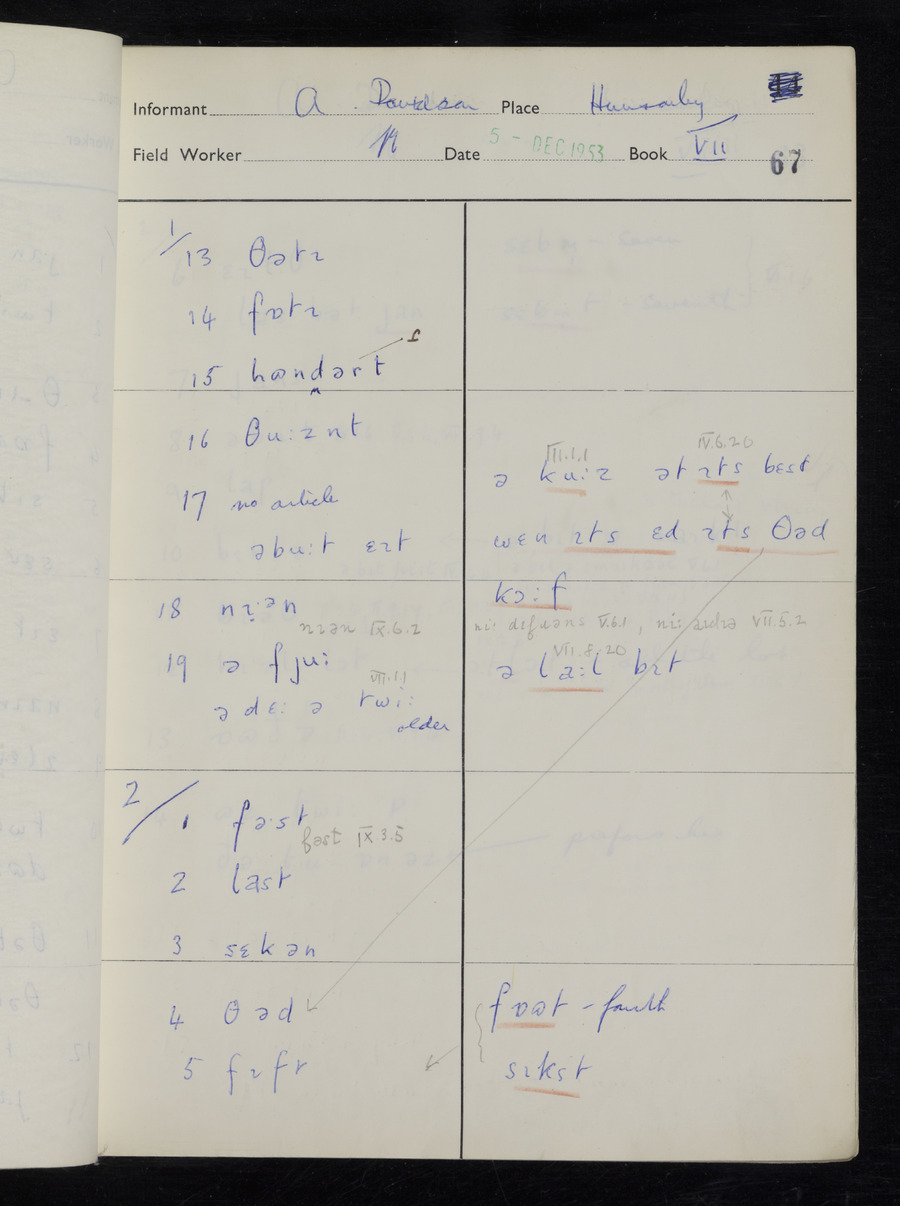 Informant A. Davidson Place Hunsonby
Field Worker N Date 5 - DEC 1953 Book VII 67
1/
13 θətɪ
14 fɒtɪ
15 hʊndərt
16 θuːznt
17 no article
əbuːt ɛɪt
18 nɪːən
nɪən IX.6.2
19 ə fjuː
VII.1.1
ə dɛː ə twiː
older
2/
1 fəˑst
fəst IX.3.5
2 last
3 sɛkən
4 θəd
5 fɪft
III.1.1 IV.6.20
ə kuːz ət ɪts bɛst
wɛn ɪts ɛd ɪts θəd
kɔːf
V.6.1 , VII.5.2
VII.8.20
ə laːl bɪt
fɒʊt - fourth
sɪkst